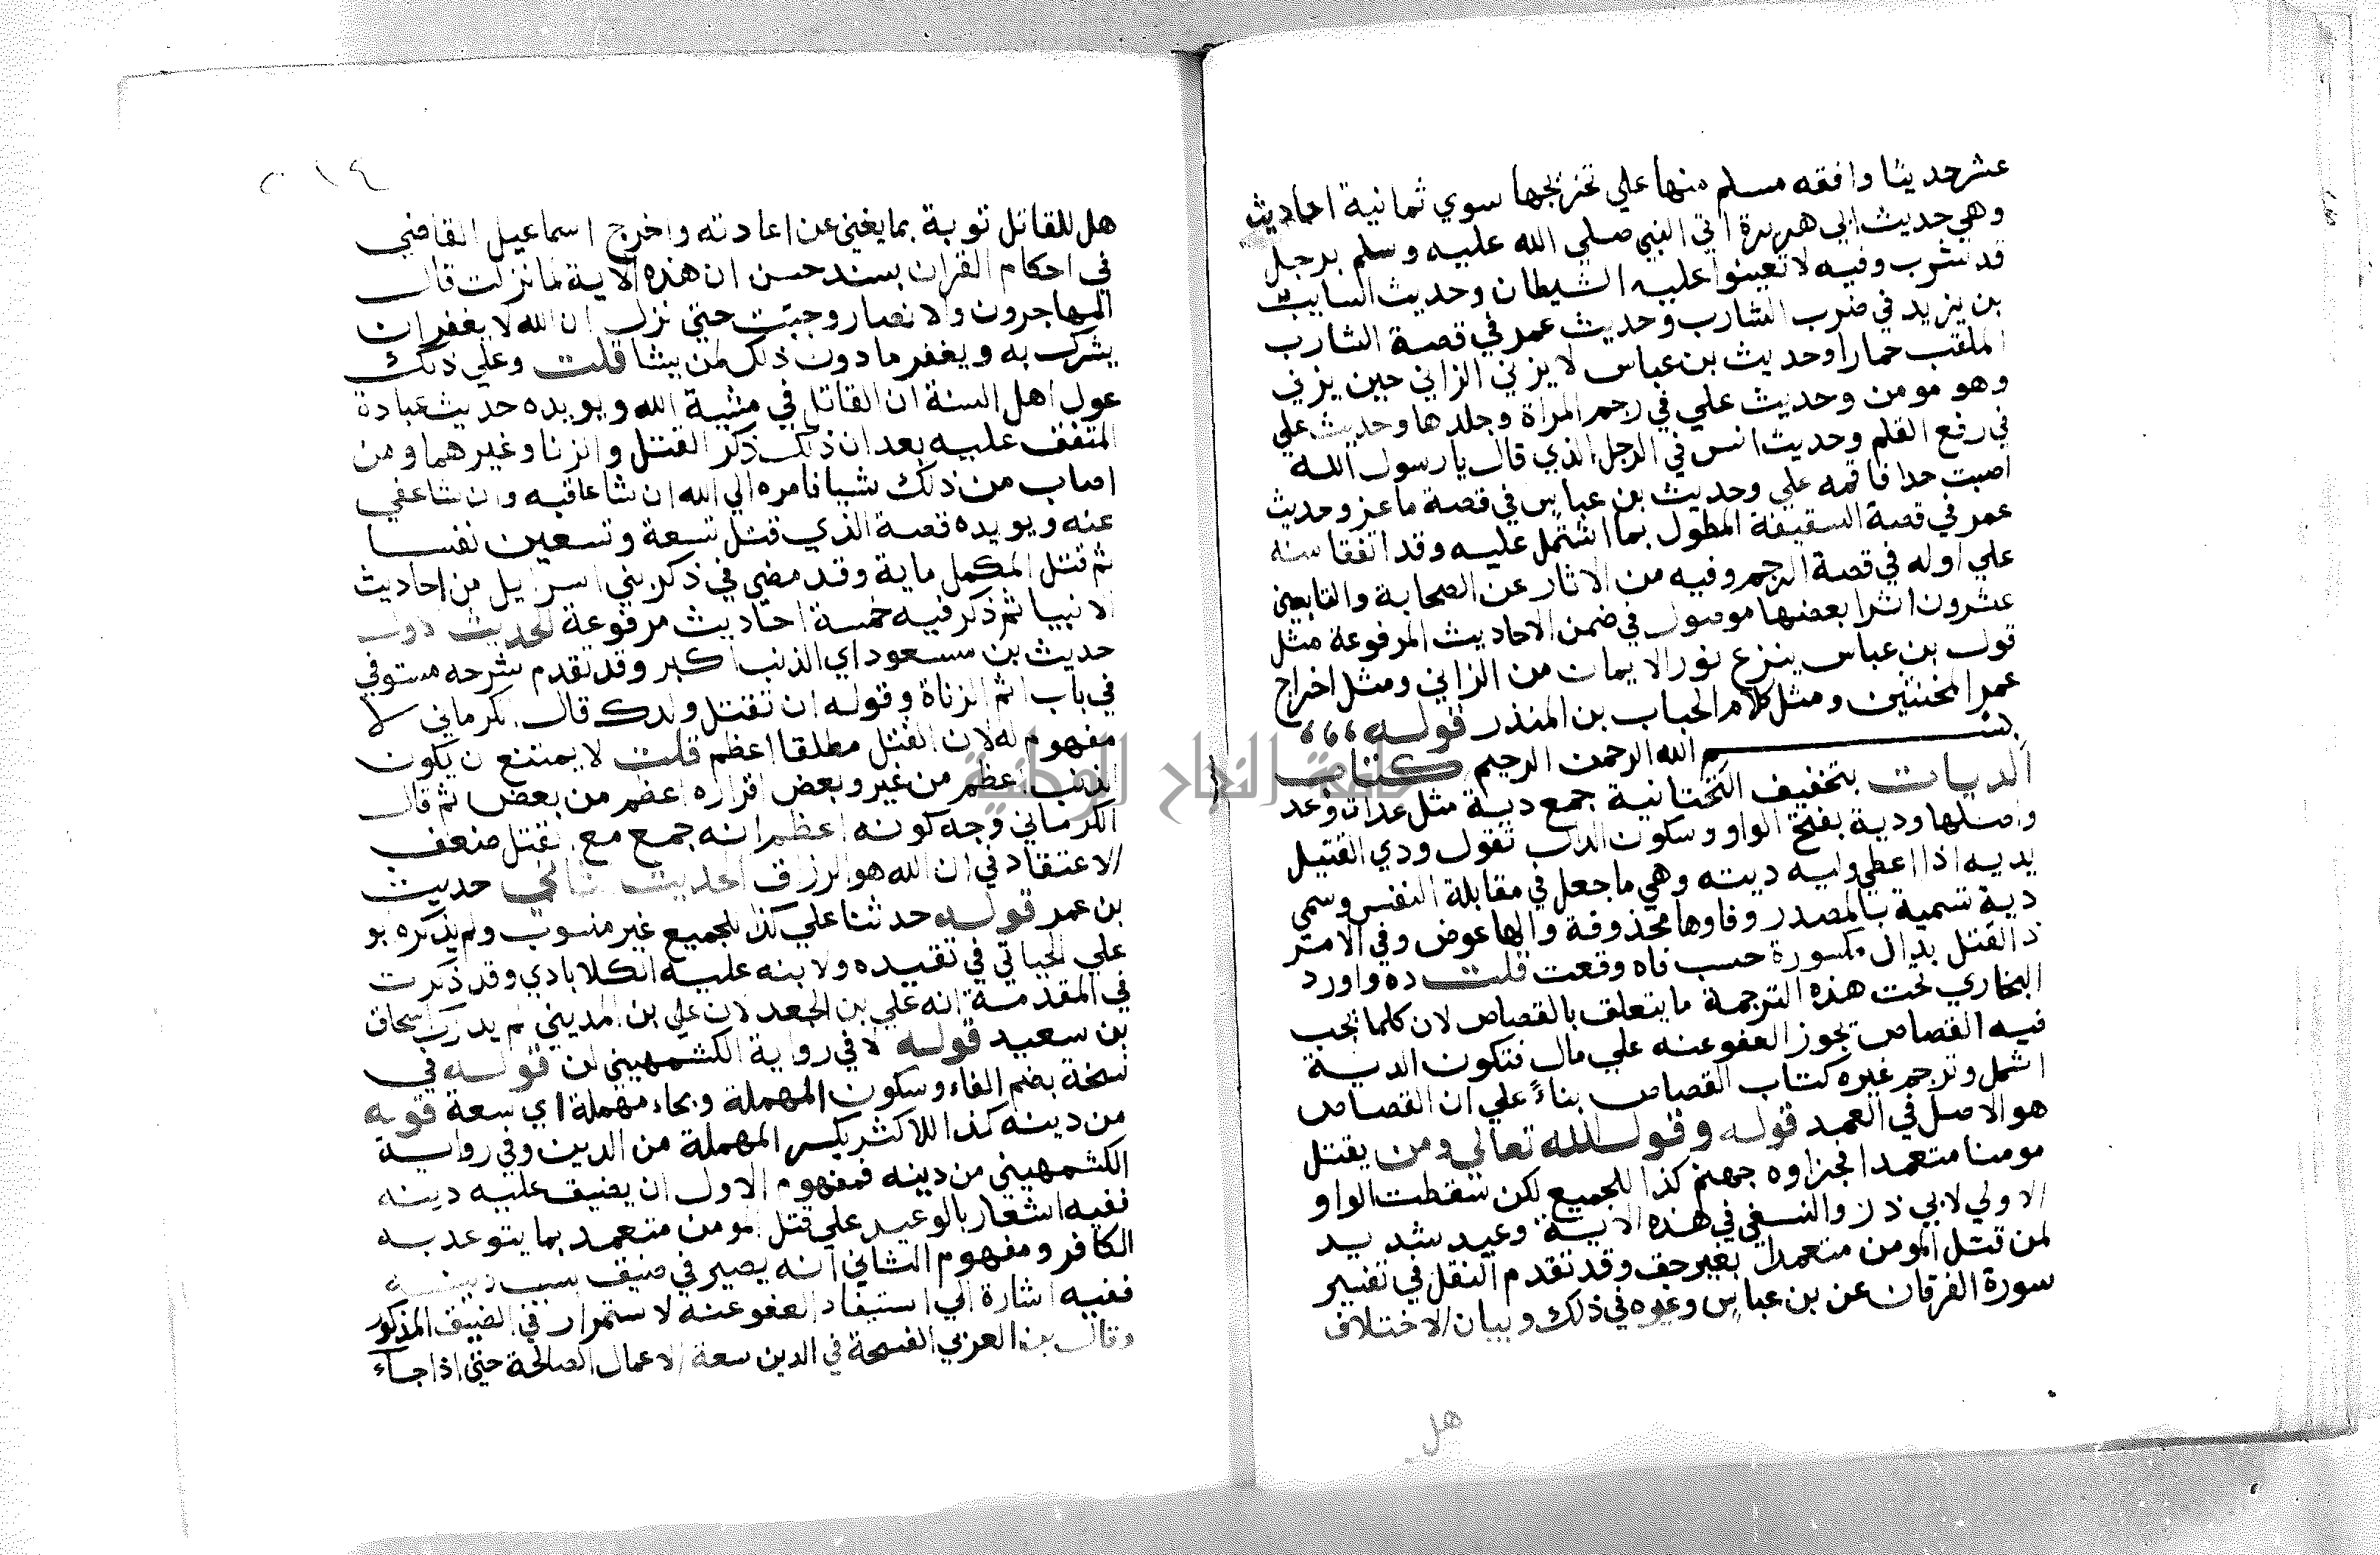 عشر حديثا وافقه مسلم منها علي تخريجها سوي ثمانية احاديث
وهي حديث ابي هريرة اتي النبي صلي الله عليه وسلم برجل
قد شرب وفيه لا تعينوا عليه الشيطان وحديث السايب
بن يزيد في ضرب الشارب وحديث عمر في قصة الشارب
الملقب حمارا وحديث بن عباس لا يزني الزاني حين يزني
وهو مومن وحديث علي في رجم المراة وجلدها وحديث علي
في رفع القلم وحديث انس في الرجل الذي قال يا رسول الله
اصبت حدا فاقمه علي وحديث بن عباس في قصة ماعز وحديث
عمر في قصة السقيفة المطول بما اشتمل عليه وقد اتفقا منه
علي اوله في قصة الرجم وفيه من الاثار عن الصحابة والتابعين
عشرون اثرا بعضها موصول في ضمن الاحاديث المرفوعة مثل
قول بن عباس ينزع نور الايمان من الزاني ومثل اخراج
عمر المخنثين ومثل كلام الحباب بن المنذر قوله
بسم الله الرحمن الرحيم كتاب
الديات بتخفيف التحتانية جمع دية مثل عدات وعد
واصلها ودية بفتح الواو وسكون الدال تقول ودي القتيل
يديه اذا اعطي وليه ديته وهي ما جعل في مقابلة النفس وسمي
دية تسمية بالمصدر وفاوها محذوفة والها عوض وفي الامر
د القتل بدال مكسورة حسب فاه وقعت قلت ده واورد
البخاري تحت هذه الترجمة ما يتعلق بالقصاص لان كلما يجب
فيه القصاص يجوز العفو عنه علي مال فتكون الدية
اشمل وترجم غيره كتاب القصاص بناءً علي ان القصاص
هو الاصل في العمد قوله وقول الله تعالي ومن يقتل
مومنا متعمدا فجزاوه جهنم كذا للجميع لكن سقطت الواو
الاولي لابي ذر والنسفي في هذه الاية وعيد شديد
لمن قتل المومن متعمدا بغير حق وقد تقدم النقل في تفسير
سورة الفرقان عن بن عباس وغيره في ذلك وبيان الاختلاف
هل
هل للقاتل توبة بما يغني عن اعادته واخرج اسماعيل القاضي
في احكام القران بسند حسن ان هذه الاية لما نزلت قال
المهاجرون والانصار وجبت حتي نزل ان الله لا يغفر ان
يشرك به ويغفر ما دون ذلك لمن يشا قلت وعلي ذلك
عول اهل السنة ان القاتل في مشية الله ويويده حديث عبادة
المتفق عليه بعد ان ذلك ذكر القتل والزنا وغيرهما ومن
اصاب من ذلك شيا فامره الي الله ان شا عاقبه وان شا عفي
عنه ويويده قصة الذي قتل تسعة وتسعين نفسا
ثم قتل المكمل ماية وقد مضي في ذكر بني اسرايل من احاديث
الانبيا ثم ذكر فيه خمسة احاديث مرفوعة الحديث الاول
حديث بن مسعود اي الذنب اكبر وقد تقدم شرحه مستوفي
في باب اثم الزناة وقوله ان تقتل ولدك قال الكرماني لا
مفهوم له لان القتل مطلقا اعظم قلت لا يمتنع ان يكون
الذنب اعظم من غيره وبعض افراده اعظم من بعض ثم قال
الكرماني وجه كونه اعظم انه جمع مع القتل ضعف
الاعتقاد في ان الله هو الرزاق الحديث الثاني حديث
بن عمر قوله حدثنا علي كذا للجميع غير منسوب ولم يذكره ابو
علي الجياني في تقييده ولا نبه عليه الكلاباذي وقد ذكرت
في المقدمة انه علي بن الجعد لان علي بن المديني لم يدرك اسحاق
بن سعيد قوله لا في رواية الكشمهيني لن قوله في
نسخة بضم الفاء وسكون المهملة وبحاء مهملة اي سعة قوله
من دينه كذا للاكثر بكسر المهملة من الدين وفي رواية
الكشمهيني من دينه فمفهوم الاول ان يضيق عليه دينه
ففيه اشعار بالوعيد علي قتل المومن متعمد بما يتوعد به
الكافر ومفهوم الثاني انه يصير في ضيق بسبب ذنبه
ففيه اشارة الي استبعاد العفو عنه لاستمراره في الضيق المذكور
وقال بن العربي الفسحة في الدين سعة الاعمال الصالحة حتي اذا جاء
جامعة النجاح الوطنية